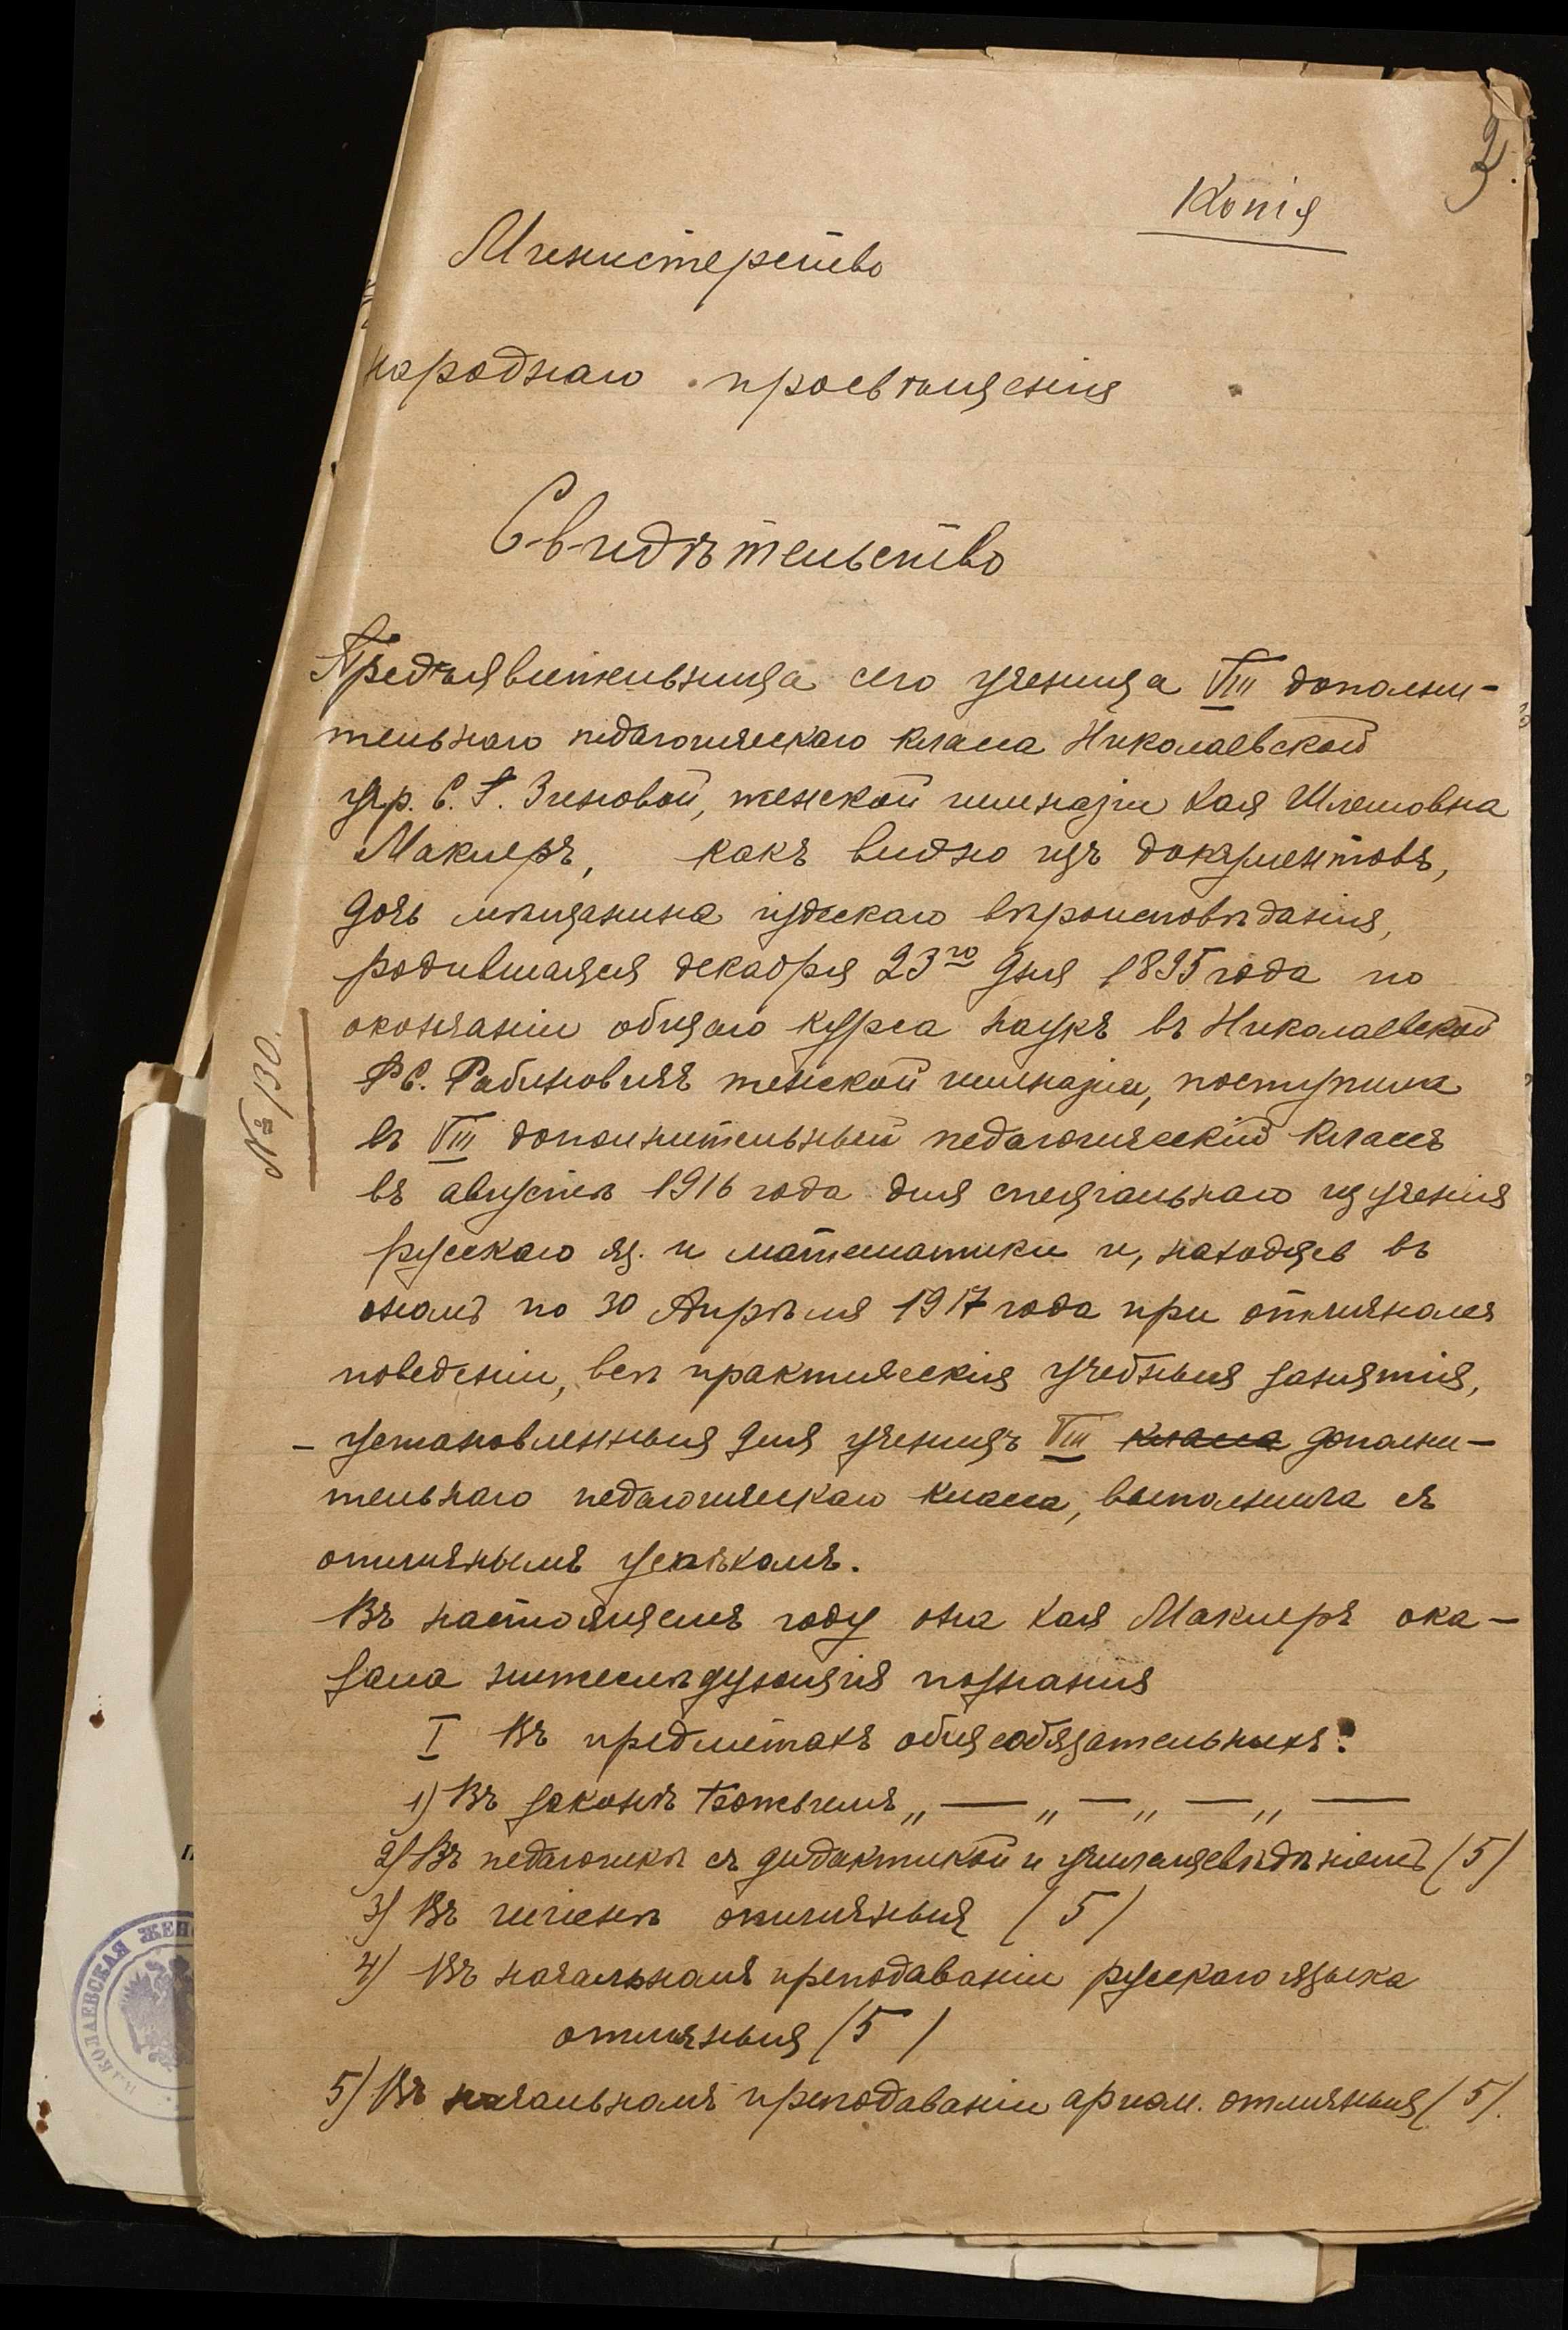 2.
Копія
Министерство
народнаго просвѣщенія
Свидѣтельство
Предъявительница сего ученица VIII дополни-
тельнаго педагогическаго класса Николаевской
учр. С. Г. Зиновой, женской гимназіи Хая Шлемовна
Маклеръ, какъ видно изъ документовъ,
дочь мѣщанина іудескаго вѣроисповѣданія,
родившаяся декабря 23го дня 1895 года по
окончаніи общаго курса наукъ въ Николаевской
Р С. Рабиновичъ женской гимназіи, поступила
въ VIII дополнительный педагогическій классъ
въ августѣ 1916 года для спеціальнаго изученія
русскаго яз. и математики и, находясь въ
ономъ по 30 Апрѣля 1917 года при отличномъ
поведеніи, всѣ практическія учебныя занятія,
- установленныя для ученицъ VIII класса дополни-
тельнаго педагогическаго класса, выполнила съ
отличнымъ успѣхомъ.
Въ настоящемъ году она Хая Маклеръ ока-
зала нижеслѣдующія познанія
I Въ предметахъ общеобязательныхъ:
1) Въ законѣ Божьемъ „ — „ — „ — „ —
2) Въ педагогикѣ съ дидактикой и училищевѣдѣніемъ (5)
3) Въ гигіенѣ отличныя (5)
4) Въ начальномъ преподаваніи русскаго языка
отличныя (5)
5) Въ начальномъ преподаваніи ариѳм. отличныя (5).
№ 130.
НИКОЛАЕВСКАЯ ЖЕН